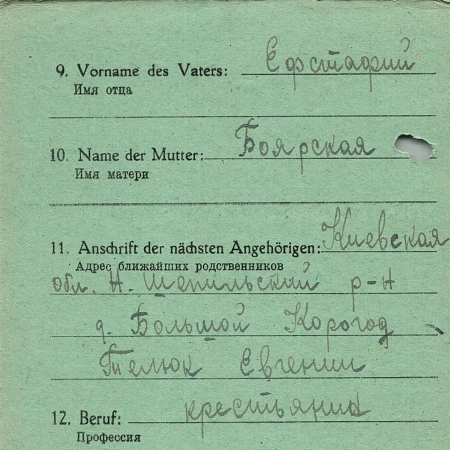 9. Vorname des Vaters: Ефстафий
Имя отца
10. Name der Mutter: Боярская
Имя матери
11. Anschrift der nächsten Angehörigen: Киевская
Адрес ближайших родственников
обл. Н. Шепильский р-н
д. Большой Корогод
Телюк Евгении
12. Beruf: крестьянин
Профессия